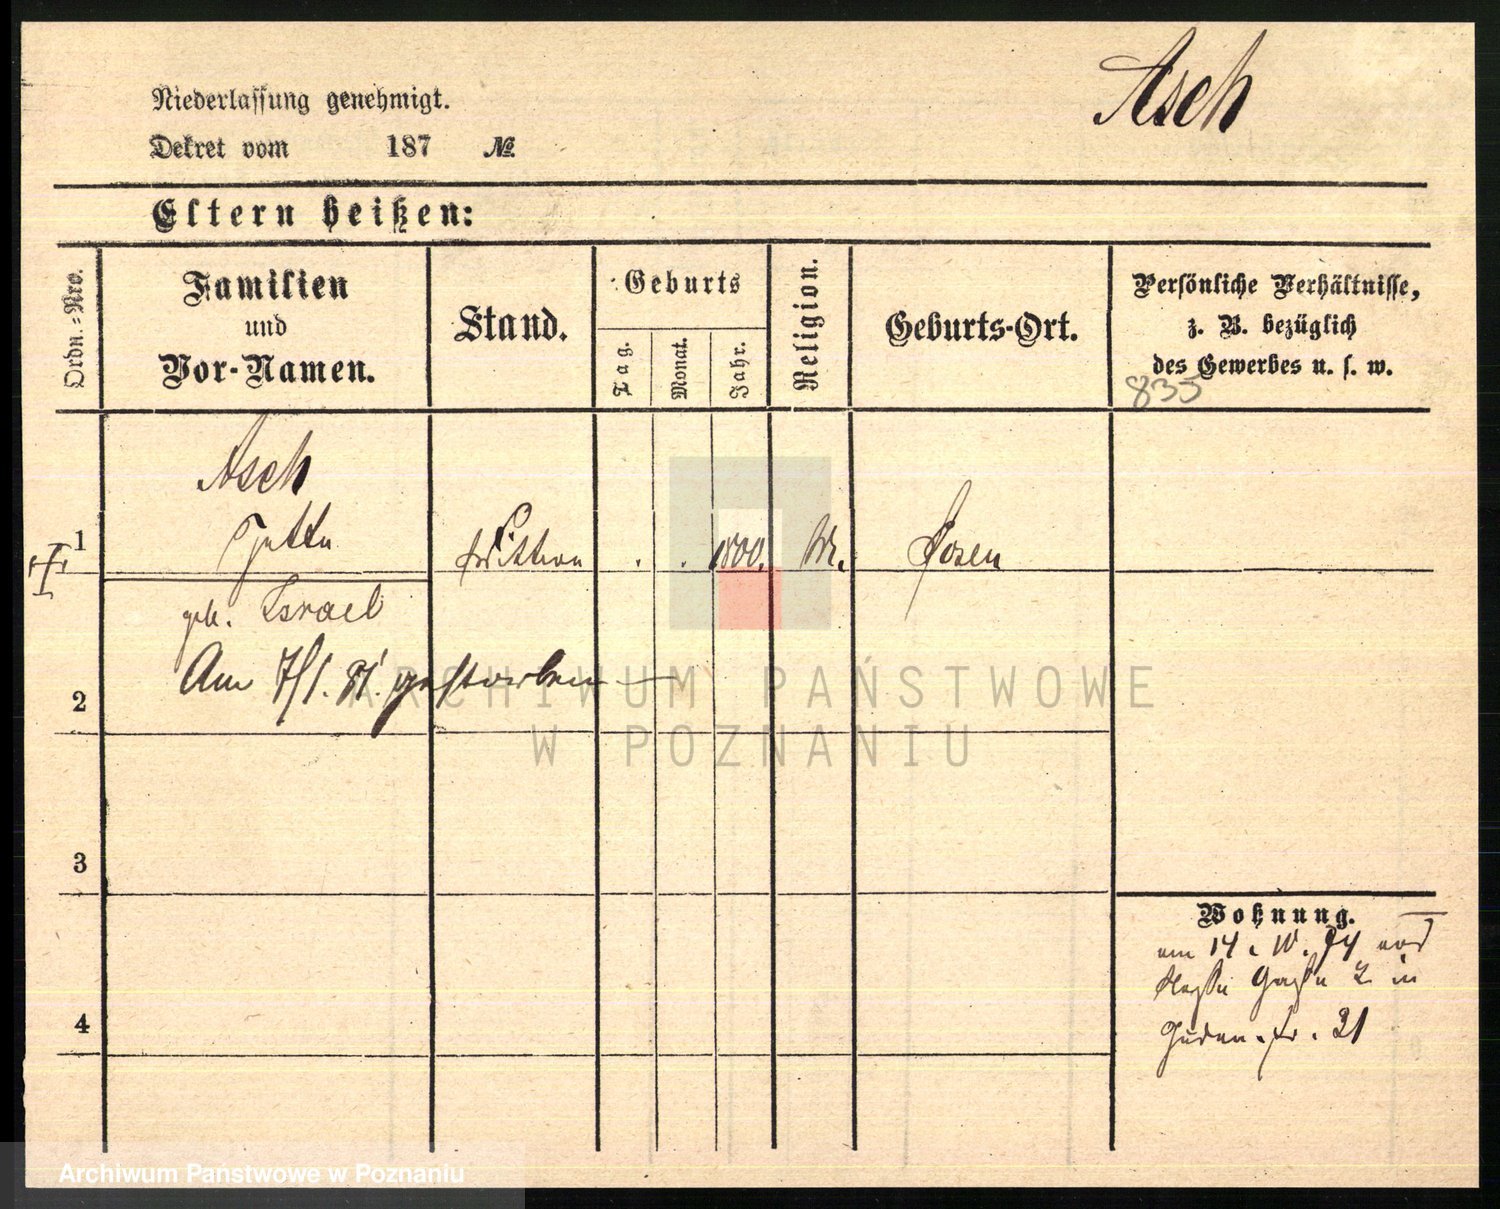 Asch
Niederlassung genehmigt.
Dekret vom 187 №
Eltern heißen:
Ordn.=Nro.
Familien
und
Vor-Namen.
Stand.
Geburts
Tag.
Monat.
Jahr.
Religion.
Geburts-Ort.
Persönliche Verhältnisse,
z. B. bezüglich
des Gewerbes u. s. w.
835
Asch
1
1800.
Posen
geb. Israel
Am 7/1. 81. gestorben
2
ARCHIWUM PAŃSTWOWE
W POZNANIU
3
Wohnung.
am 14. 10. 74
in
4
Juden-str. 31
Archiwum Panstwowe w Poznaniu